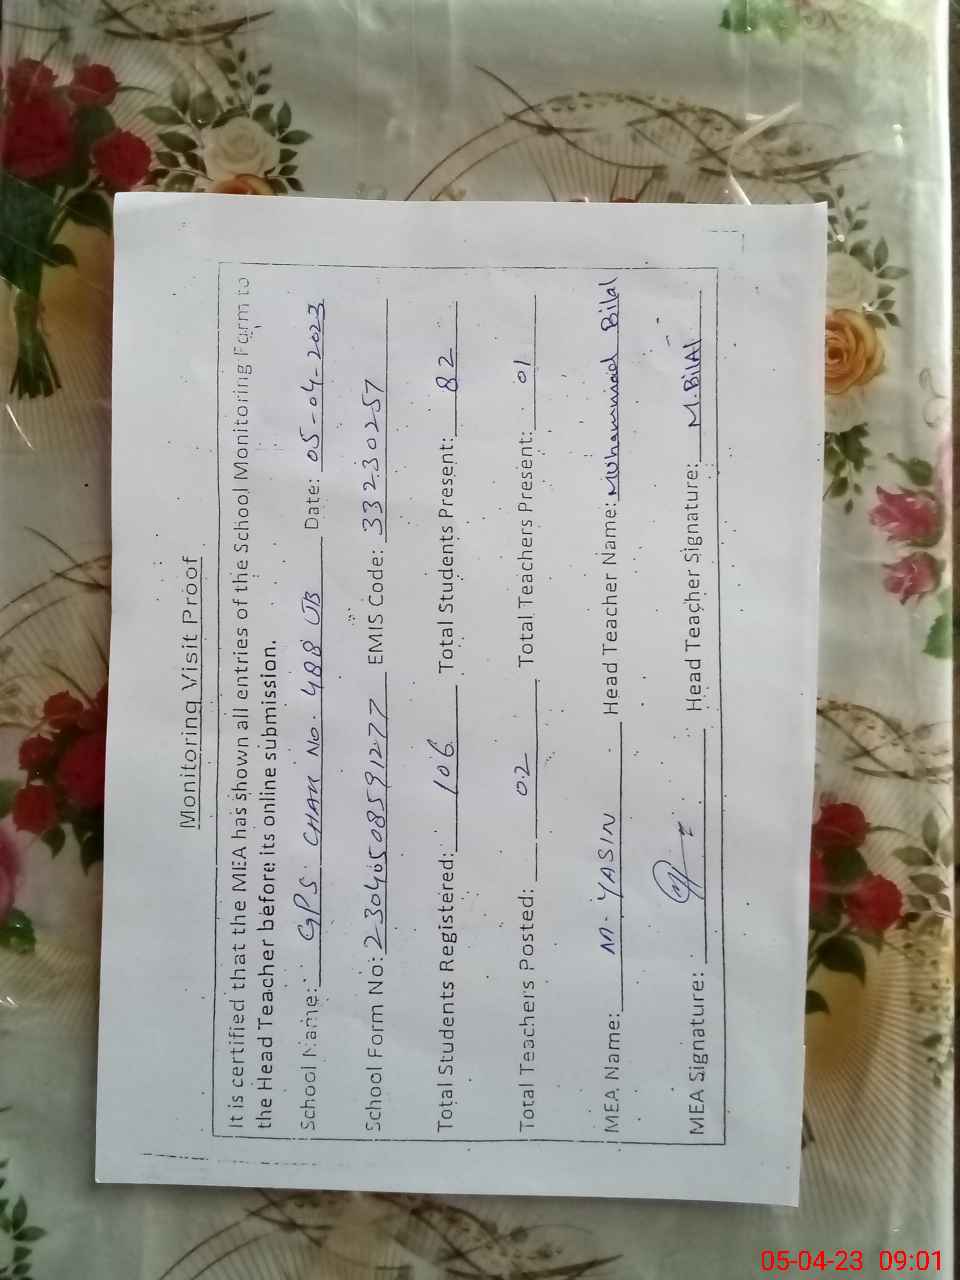 Monitoring Visit Proof
It is certified that the MEA has shown all entries of the School Monitoring Form to
the Head Teacher before its online submission.
School Name: GPS CHAK No. 488 JB Date: 05-04-2023
School Form No: 23040508591277 EMIS Code: 33230257
Total Students Registered: 106 Total Students Present: 82
Total Teachers Posted: 02 Total Teachers Present: 01
MEA Name: M. YASIN Head Teacher Name: Muhammad Bilal
MEA Signature: Head Teacher Signature: M.BilAl
05-04-23 09:01